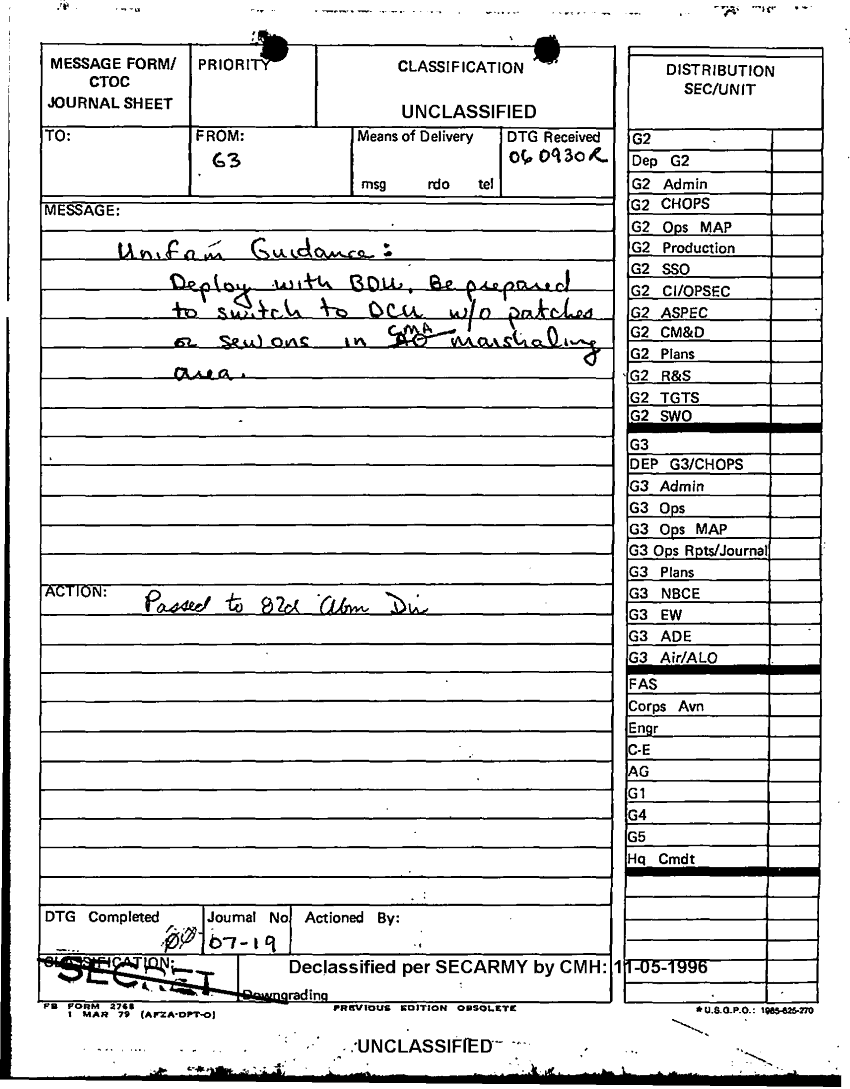 MESSAGE FORM/
CTOC
JOURNAL SHEET
PRIORITY
CLASSIFICATION
UNCLASSIFIED
TO:
FROM:
G3
Means of Delivery
msg rdo tel
DTG Received
060930R
MESSAGE:
Uniform Guidance:
Deploy with BDU. Be prepared
to switch to DCU w/o patches
or sew ons in CMA marshaling
area.
ACTION:
Passed to 82d Abn Div
DTG Completed
Journal No
07-19
Actioned By:
CLASSIFICATION:
SECRET
Declassified per SECARMY by CMH: 11-05-1996
Downgrading
FB FORM 2768
1 MAR 79 (AFZA-DPT-O)
PREVIOUS EDITION OBSOLETE
* U.S.G.P.O.: 1985-625-270
UNCLASSIFIED
DISTRIBUTION
SEC/UNIT
G2
Dep G2
G2 Admin
G2 CHOPS
G2 Ops MAP
G2 Production
G2 SSO
G2 CI/OPSEC
G2 ASPEC
G2 CM&D
G2 Plans
G2 R&S
G2 TGTS
G2 SWO
G3
DEP G3/CHOPS
G3 Admin
G3 Ops
G3 Ops MAP
G3 Ops Rpts/Journal
G3 Plans
G3 NBCE
G3 EW
G3 ADE
G3 Air/ALO
FAS
Corps Avn
Engr
C-E
AG
G1
G4
G5
Hq Cmdt